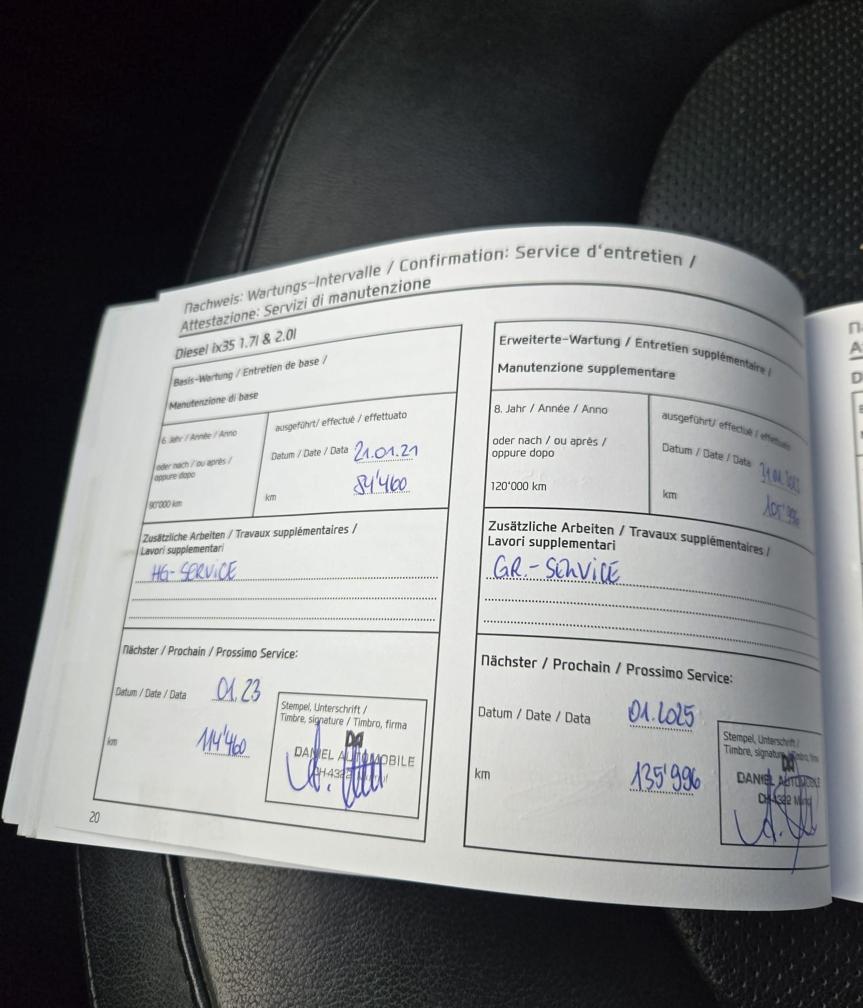 Nachweis: Wartungs-Intervalle / Confirmation: Service d'entretien /
Attestazione: Servizi di manutenzione
Diesel ix35 1.7l & 2.0l
Basis-Wartung / Entretien de base /
Manutenzione di base
6. Jahr / Année / Anno
oder nach / ou après /
oppure dopo
90'000 km
ausgeführt/ effectué / effettuato
Datum / Date / Data 21.01.21
km 84'460
Zusätzliche Arbeiten / Travaux supplémentaires /
Lavori supplementari
HG-SERVICE
Nächster / Prochain / Prossimo Service:
Datum / Date / Data 01.23
km 114'460
Stempel, Unterschrift /
Timbre, signature / Timbro, firma
DANIEL AUTOMOBILE
CH-4322
20
Erweiterte-Wartung / Entretien supplémentaire /
Manutenzione supplementare
8. Jahr / Année / Anno
oder nach / ou après /
oppure dopo
120'000 km
ausgeführt/ effectué / effettuato
Datum / Date / Data
km 105'996
Zusätzliche Arbeiten / Travaux supplémentaires /
Lavori supplementari
GR.-SERVICE
Nächster / Prochain / Prossimo Service:
Datum / Date / Data 01.2025
km 135'996
Stempel, Unterschrift /
Timbre, signature / Timbro, firma
DANIEL AUTOMOBILE
CH-4322